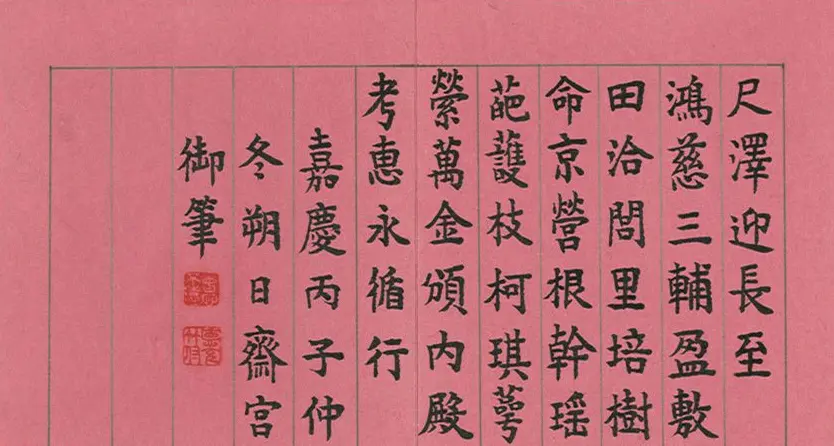 尺澤迎長至
鴻慈三輔盈敷
田洽閭里培樹
命京營根幹瑶
葩䕶枝柯琪蕚
縈萬金頒内殿
考惠永循行
嘉慶丙子仲
冬朔日齋宮
御筆